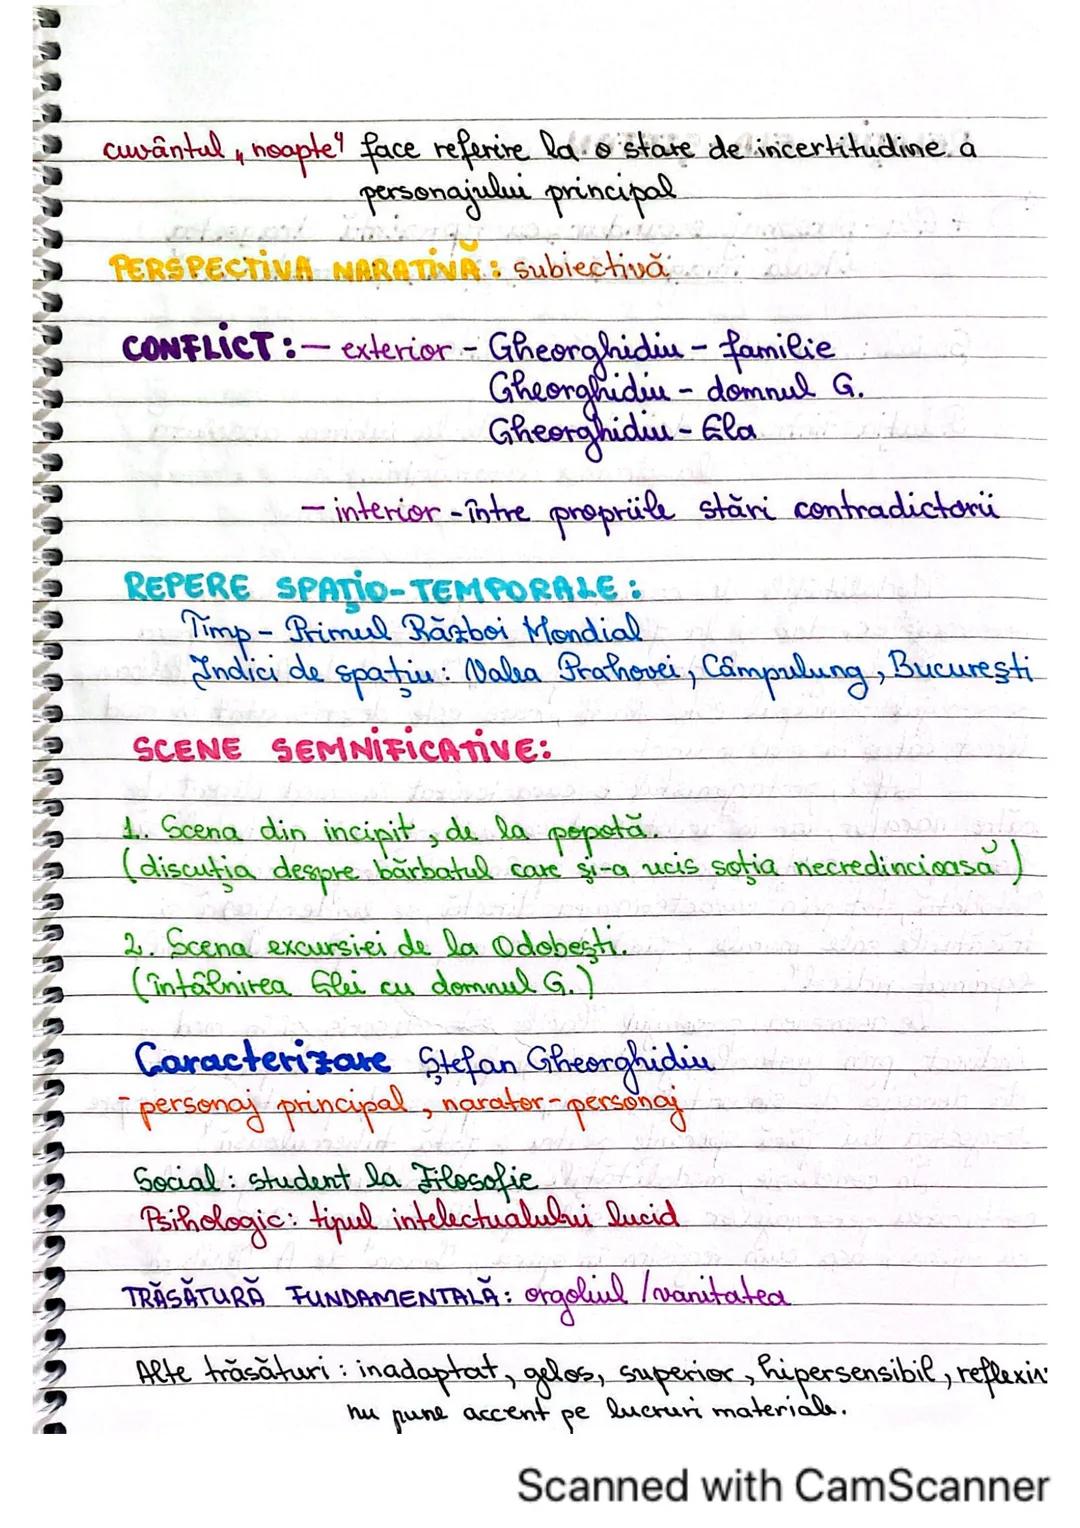 cuvântul „noapte" face referire la o stare de incertitudine a
personajului principal
PERSPECTIVA NARATIVĂ: subiectivă
CONFLICT: - exterior - Gheorghidiu - familie
Gheorghidiu - domnul G.
Gheorghidiu - Ela
- interior - între propriile stări contradictorii
REPERE SPAȚIO-TEMPORALE:
Timp - Primul Război Mondial
Indici de spațiu: Valea Prahovei, Câmpulung, București
SCENE SEMNIFICATIVE:
1. Scena din incipit, de la popotă.
(discuția despre bărbatul care și-a ucis soția necredincioasă)
2. Scena excursiei de la Odobești.
(întâlnirea Elei cu domnul G.)
Caracterizare Ștefan Gheorghidiu
- personaj principal, narator-personaj
Social: student la Filosofie
Psihologic: tipul intelectualului lucid
TRĂSĂTURĂ FUNDAMENTALĂ: orgoliul /vanitatea
Alte trăsături: inadaptat, gelos, superior, hipersensibil, reflexiv
nu pune accent pe lucruri materiale.
Scanned with CamScanner